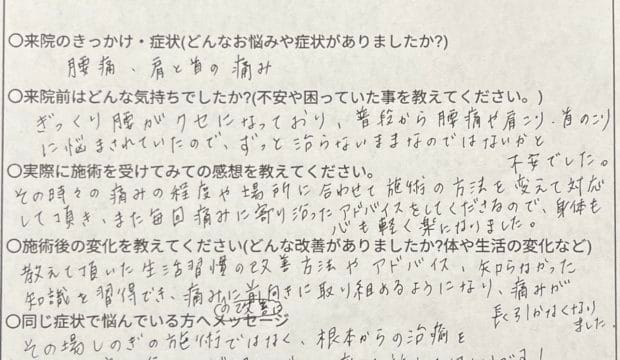 〇来院のきっかけ・症状(どんなお悩みや症状がありましたか?)
腰痛、肩と首の痛み
〇来院前はどんな気持ちでしたか?(不安や困っていた事を教えてください。)
ぎっくり腰がクセになっており、普段から腰痛や肩こり、首のこり
に悩まされていたので、ずっと治らないままなのではないかと
不安でした。
〇実際に施術を受けてみての感想を教えてください。
その時々の痛みの程度や場所に合わせて施術の方法を変えて対応
して頂き、また毎回痛みに寄り沿ったアドバイスをしてくださるので、身体も
心も軽く楽になりました。
〇施術後の変化を教えてください(どんな改善がありましたか?体や生活の変化など)
教えて頂いた生活習慣の改善方法やアドバイス、知らなかった
知識を習得でき、痛みの改善に前向きに取り組めるようになり、痛みが
長く引かなくなり
ました。
〇同じ症状で悩んでいる方へメッセージ
その場しのぎの施術ではなく、根本からの治療を